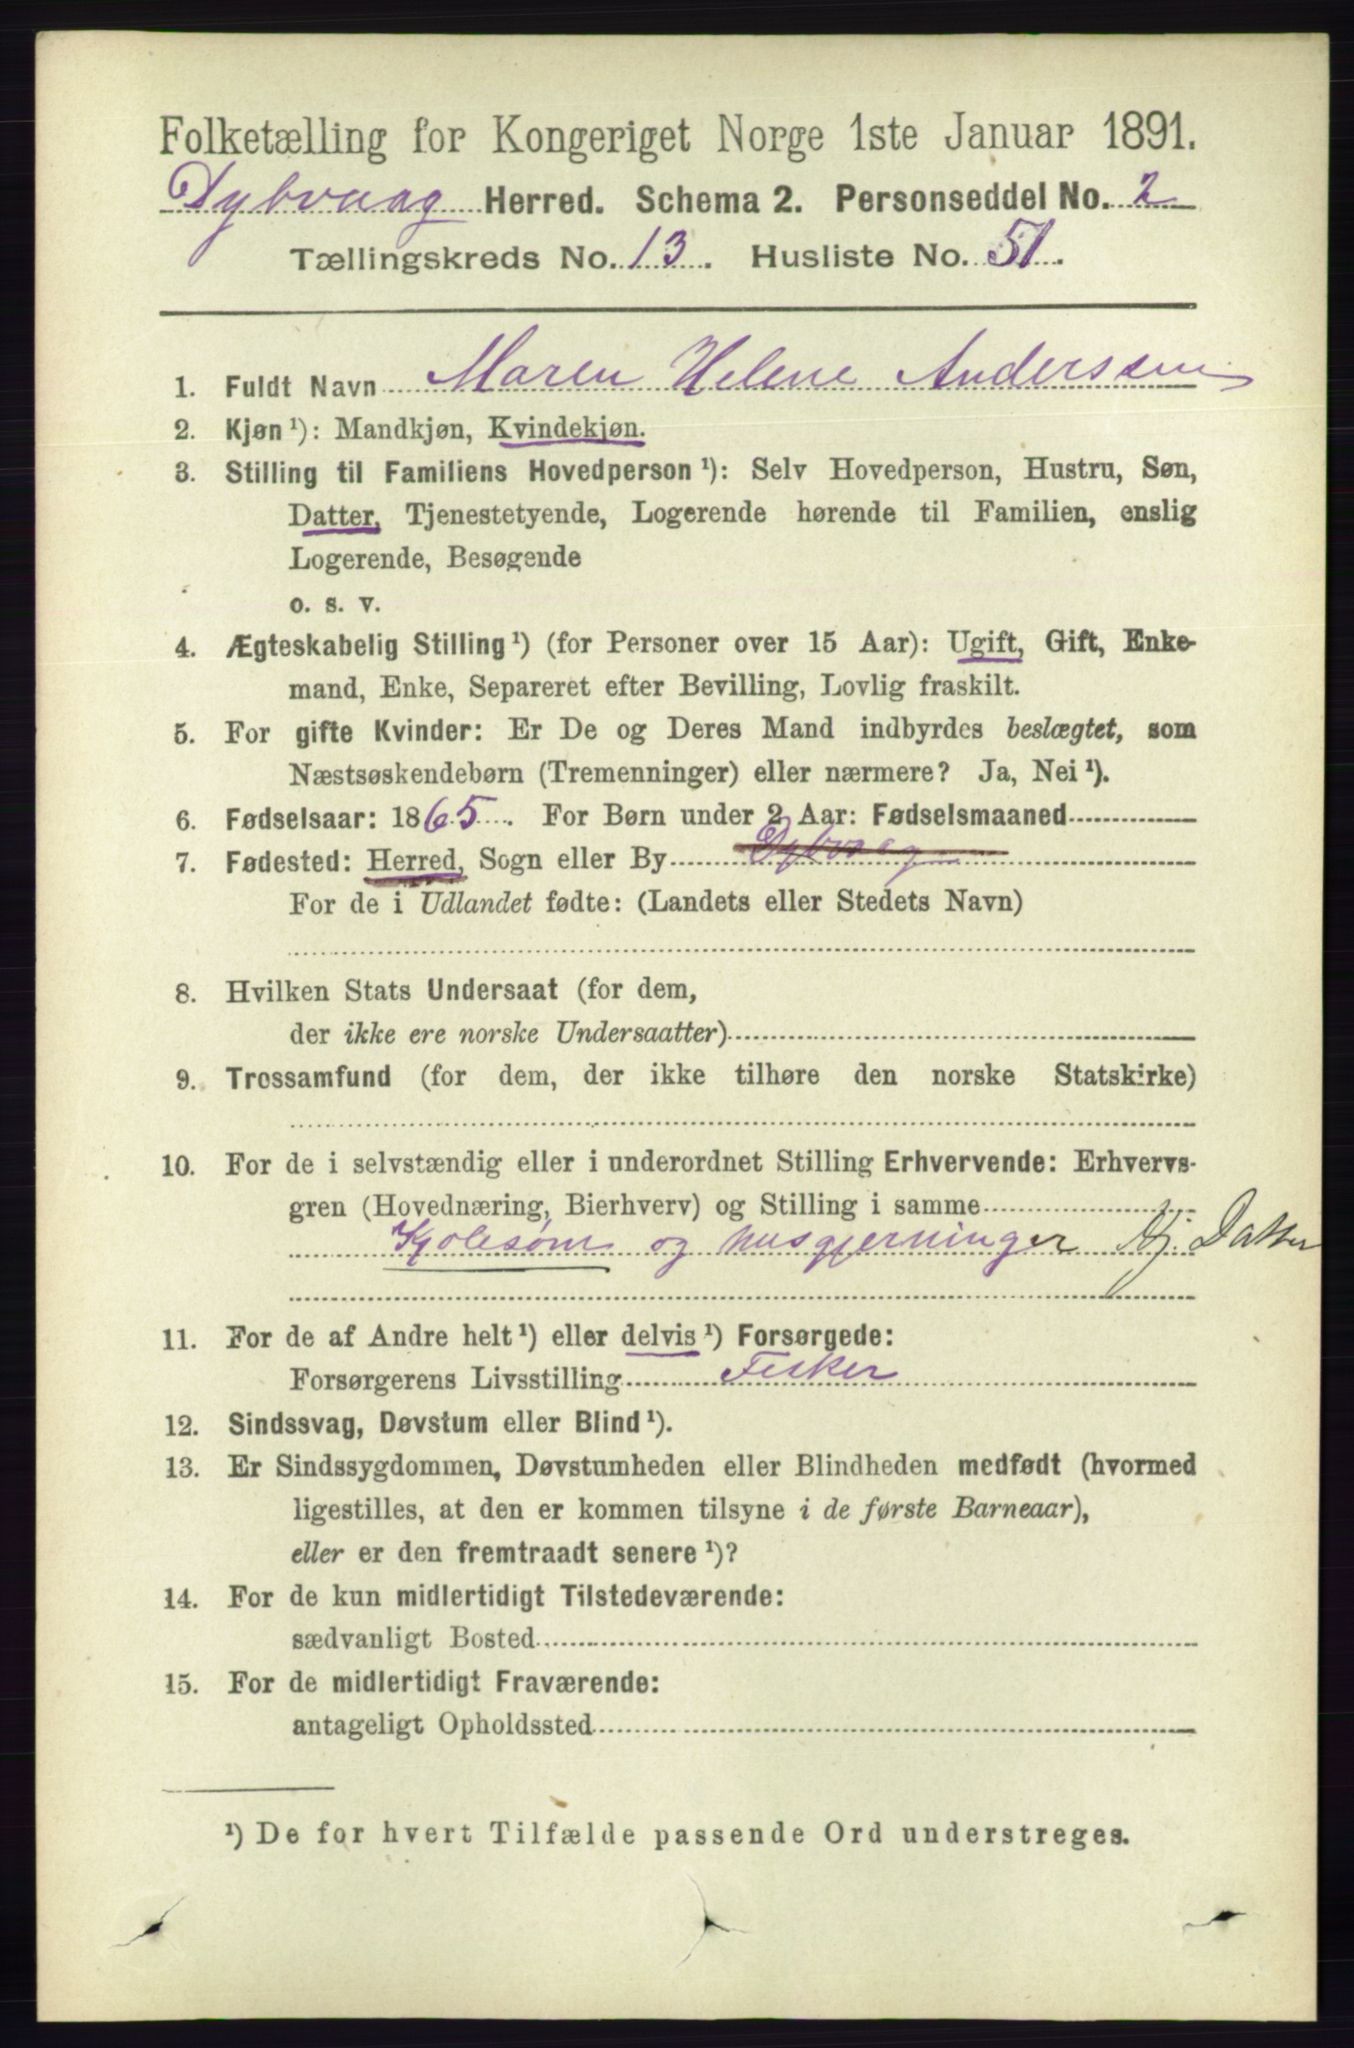 Folketælling for Kongeriget Norge 1ste Januar 1891.
Dybvaag Herred. Schema 2. Personseddel No. 2
Tællingskreds No. 13. Husliste No. 51.
1. Fuldt Navn Maren Helene Anderssen
2. Kjøn ¹): Mandkjøn, Kvindekjøn.
3. Stilling til Familiens Hovedperson ¹): Selv Hovedperson, Hustru, Søn,
Datter, Tjenestetyende, Logerende hørende til Familien, enslig
Logerende, Besøgende
o. s. v.
4. Ægteskabelig Stilling ¹) (for Personer over 15 Aar): Ugift, Gift, Enke-
mand, Enke, Separeret efter Bevilling, Lovlig fraskilt.
5. For gifte Kvinder: Er De og Deres Mand indbyrdes beslægtet, som
Næstsøskendebørn (Tremenninger) eller nærmere? Ja, Nei ¹).
6. Fødselsaar: 1865. For Børn under 2 Aar: Fødselsmaaned
7. Fødested: Herred, Sogn eller By Dybvaag
For de i Udlandet fødte: (Landets eller Stedets Navn)
8. Hvilken Stats Undersaat (for dem,
der ikke ere norske Undersaatter)
9. Trossamfund (for dem, der ikke tilhøre den norske Statskirke)
10. For de i selvstændig eller i underordnet Stilling Erhvervende: Erhvervs-
gren (Hovednæring, Bierhverv) og Stilling i samme
Kjolesøm og husgjerninger Hj. Datter
11. For de af Andre helt ¹) eller delvis ¹) Forsørgede:
Forsørgerens Livsstilling Fisker
12. Sindssvag, Døvstum eller Blind ¹).
13. Er Sindssygdommen, Døvstumheden eller Blindheden medfødt (hvormed
ligestilles, at den er kommen tilsyne i de første Barneaar),
eller er den fremtraadt senere ¹)?
14. For de kun midlertidigt Tilstedeværende:
sædvanligt Bosted
15. For de midlertidigt Fraværende:
antageligt Opholdssted
¹) De for hvert Tilfælde passende Ord understreges.